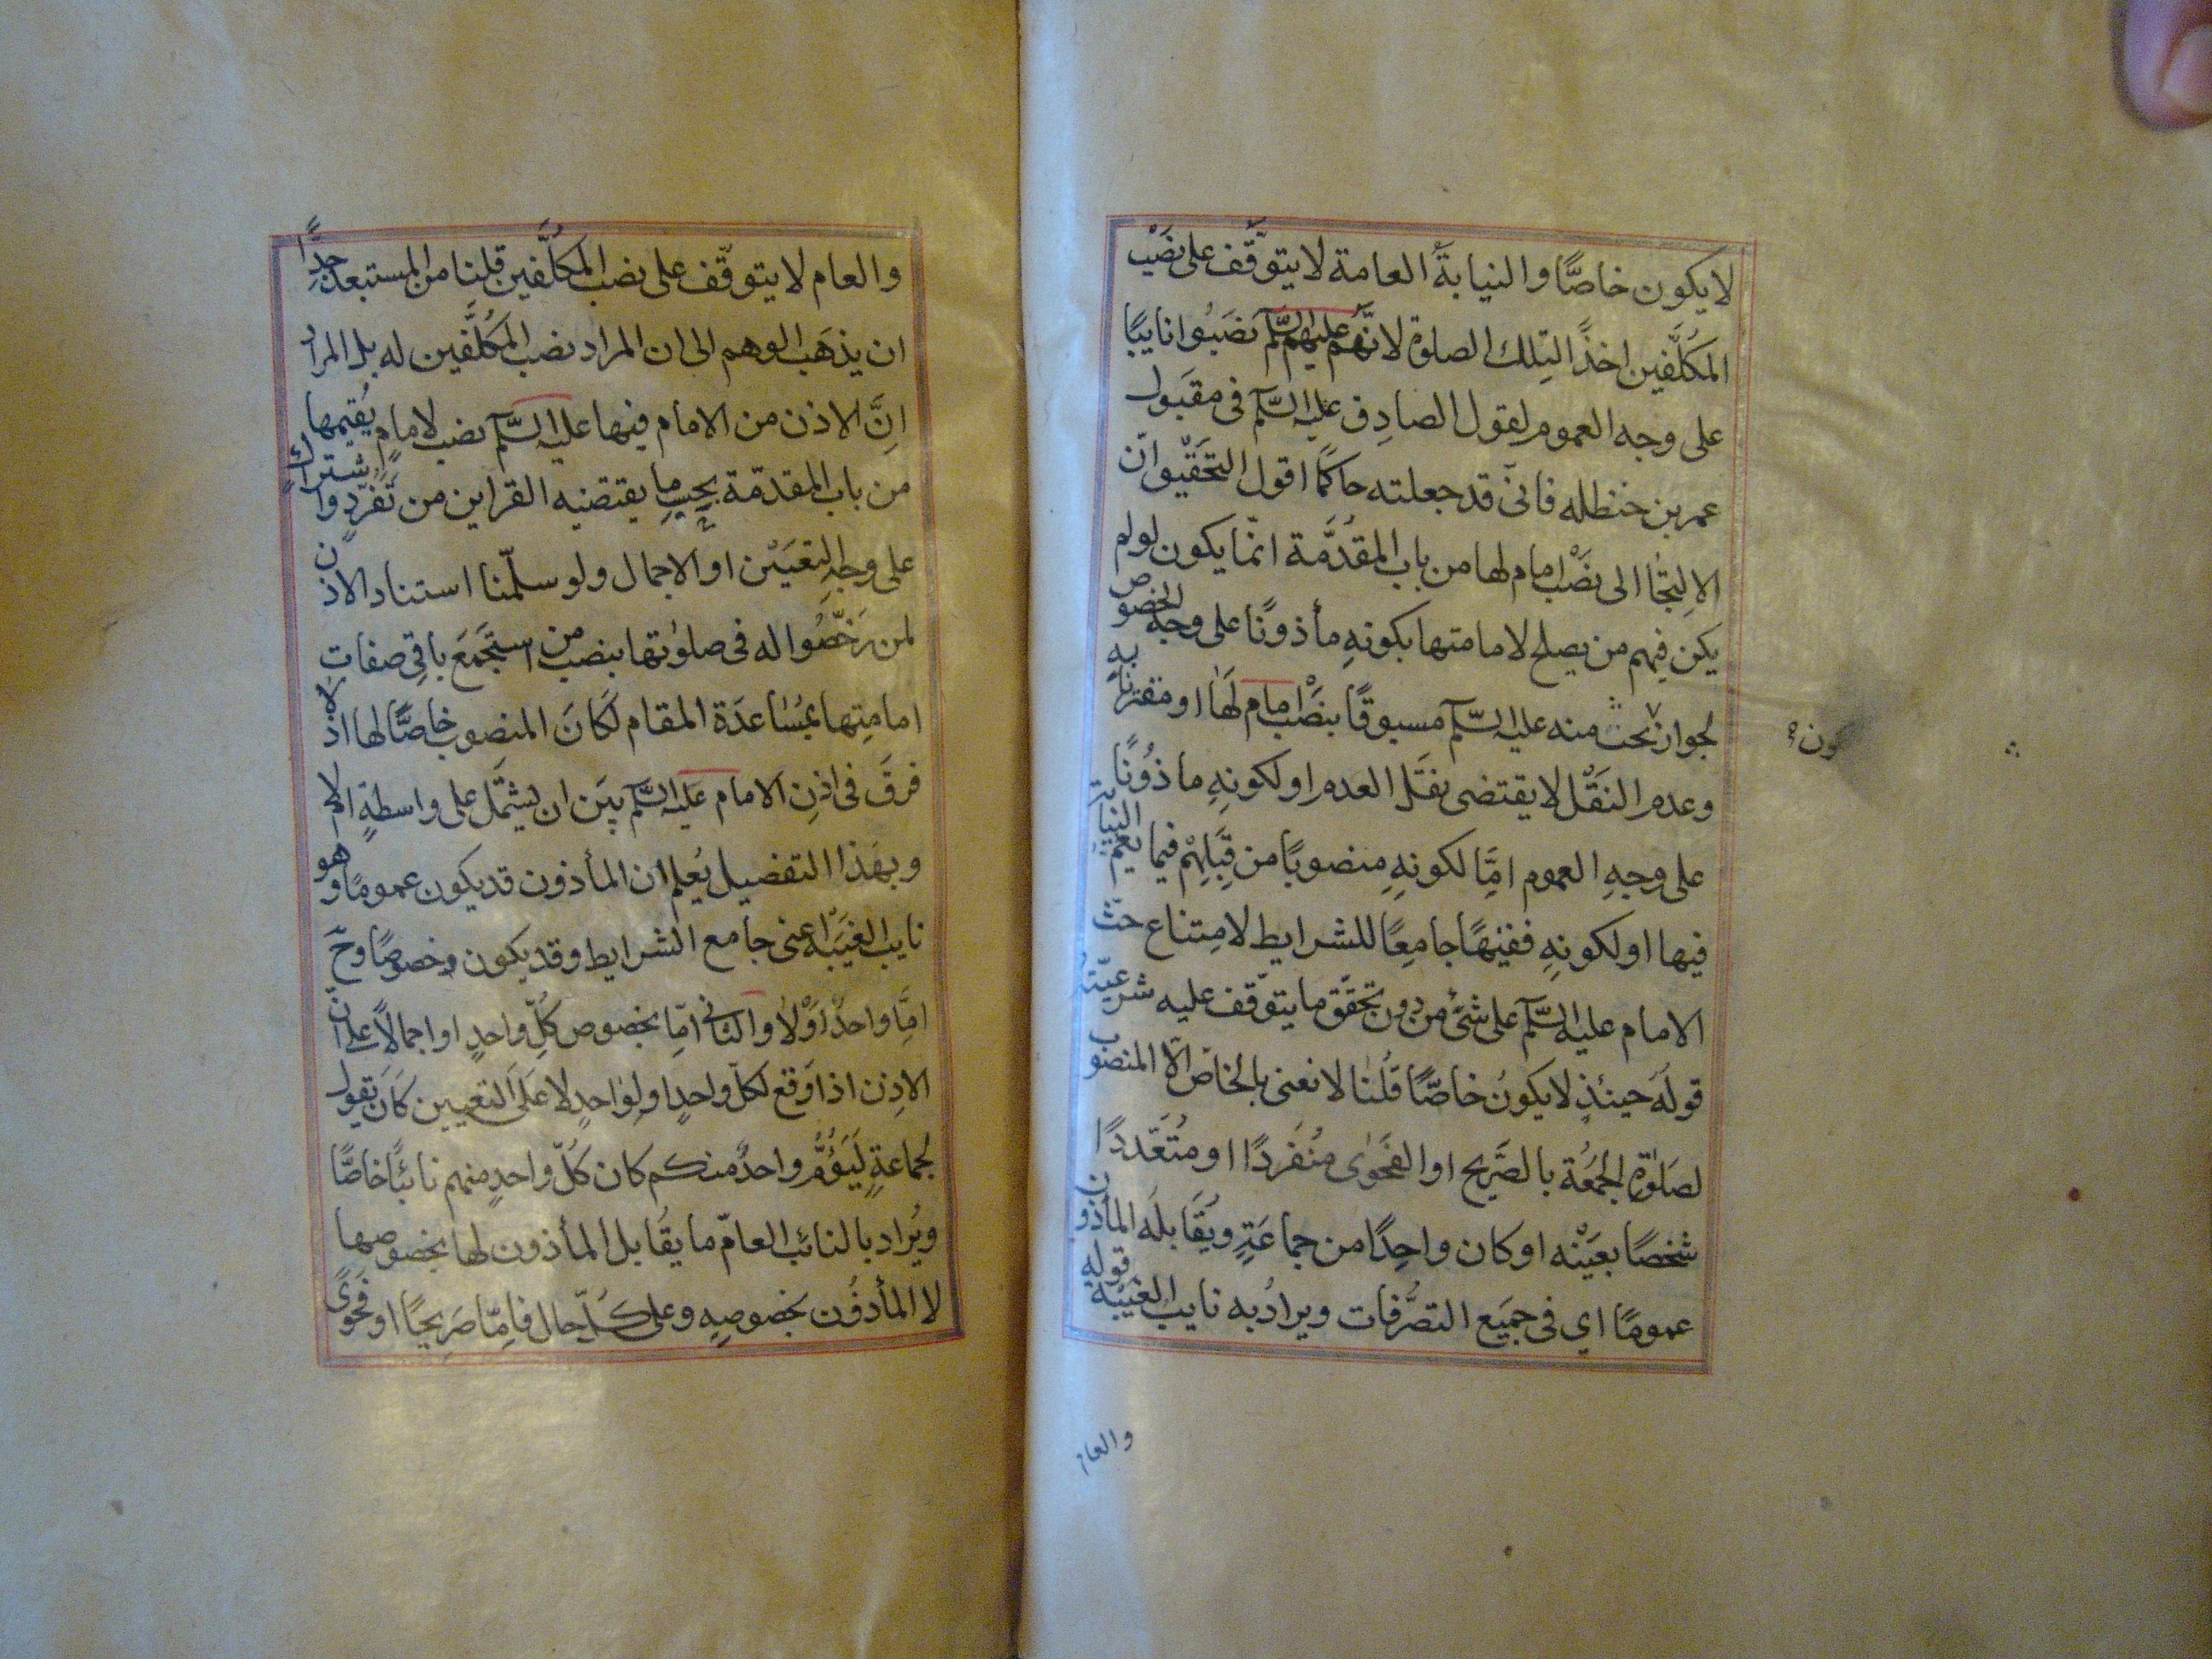 لا يكون خاصًّا والنيابةَ العامة لا يتوقّف على نَصْب
المكلَّفين اخذًا لتِلك الصلوة لانّهم عليهم السّلم نصَبُوا نايبًا
على وجه العموم لقول الصادِق عليه السّلم فى مقبول
عمر بن حنظله فانّى قد جعلته حاكمًا اقول التحَقيق انّ
الاِلتِجُا الى نَصْب امام لها من باب المقدَّمة انّما يكون لو لم
يكن فيهم من يصلح لامامتها بكونهِ مأذونًا على وجه الخصوص
لجواز بحث منه عليه السّلم مسبوقًا بنَصْب امام لَها او مقترنا به
وعدم النَقْل لا يقتضى نقل العدم او لكونهِ ماذوُنًا
على وجهِ العموم امِّا لكونهِ منصوبًا من قِبَلِهْم فيما يعم النيابة
فيها او لكونهِ فقيهًا جامِعًا للشرايط لامِتناع حثّ
الامام عليه السّلم على شئ من دون تحقّق ما يتوّقف عليه شرعيّته
قولَه حينئذٍ لا يكونُ خاصًّا قُلنا لا نعنى بالخاصّ الّا المنصوب
لصَلوٰة الجمُعَة بالصّريح او الفحَوىٰ منُفَردًا او متُعَدّدًا
شخصًا بعيَنْه او كان واحِدًا من جماعَةٍ ويُقَابلَه المأذون
عمومًا اي فى جميَع التصرُّفات ويرادُ به نايب الغَيبَة قوله
والعام
كون
والعام لا يتوقّف على نصب المكَلَّفين قلنا من المستبعد جِدًّا
ان يذهَب الوهم الى ان المراد نصب المكُلَّفين له بل المراد
انَّ الاذن من الامام فيها عليه السَّلم نصب لامامٍ يُقيمها
من باب المقدمّة بحسب ما يقتضيه القراين من تَفرّدٍ واشتراكٍ
على وجهِ التعَيَيّن او الاجمال ولو سلّمنا استناد الاذن
لمن رَخّصُوا له فى صلوٰتها بنصب من استجمَعَ باقِى صفات
امامتِها بمسُاعدَة المقام لَكانَ المنصوب خاصًّا لها اذ لا
فرقَ فى اذنِ الامام عليه السَّلم بيَن ان يشتمَّل على واسطةٍ ام لا
وبهَذا التفصيل يُعلم ان المأذون قد يكون عمومًا وهو
نايب الغيَبَة اعنى جامع الشرايط وقد يكون خصوصًا وحّ
امِّا واحدًا اوْلا والثانى امّا بخصوص كُلّ واحدٍ او اجمالًا على انّ
الاِذن اذا وَقع لكلّ واحدٍ او لِواحدٍ لا عَلَى التعيين كَان يَقول
لجماعةٍ لَيَؤُمّ واحدٌ منكم كان كُلّ واحدٍ منهم نائبًا خاصًّا
ويُراد بالنائب العامّ ما يقُابل المأذون لها بخصوصها
لا المأذوُن بخصوصِهِ وعلى كُلّ حال فامِّا صَريحًا او فحوًى